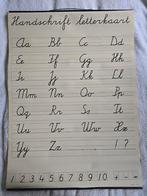 Handschrift letterkaart
Aa Bb Cc Dd
Ee Ff Gg Hh
Ii Jj Kk Ll
Mm Nn Oo Pp
Qq Rr Ss Tt
Uu Vv Ww Xx
Yy Zz ! ?
1 2 3 4 5 6 7 8 9 10 + - =